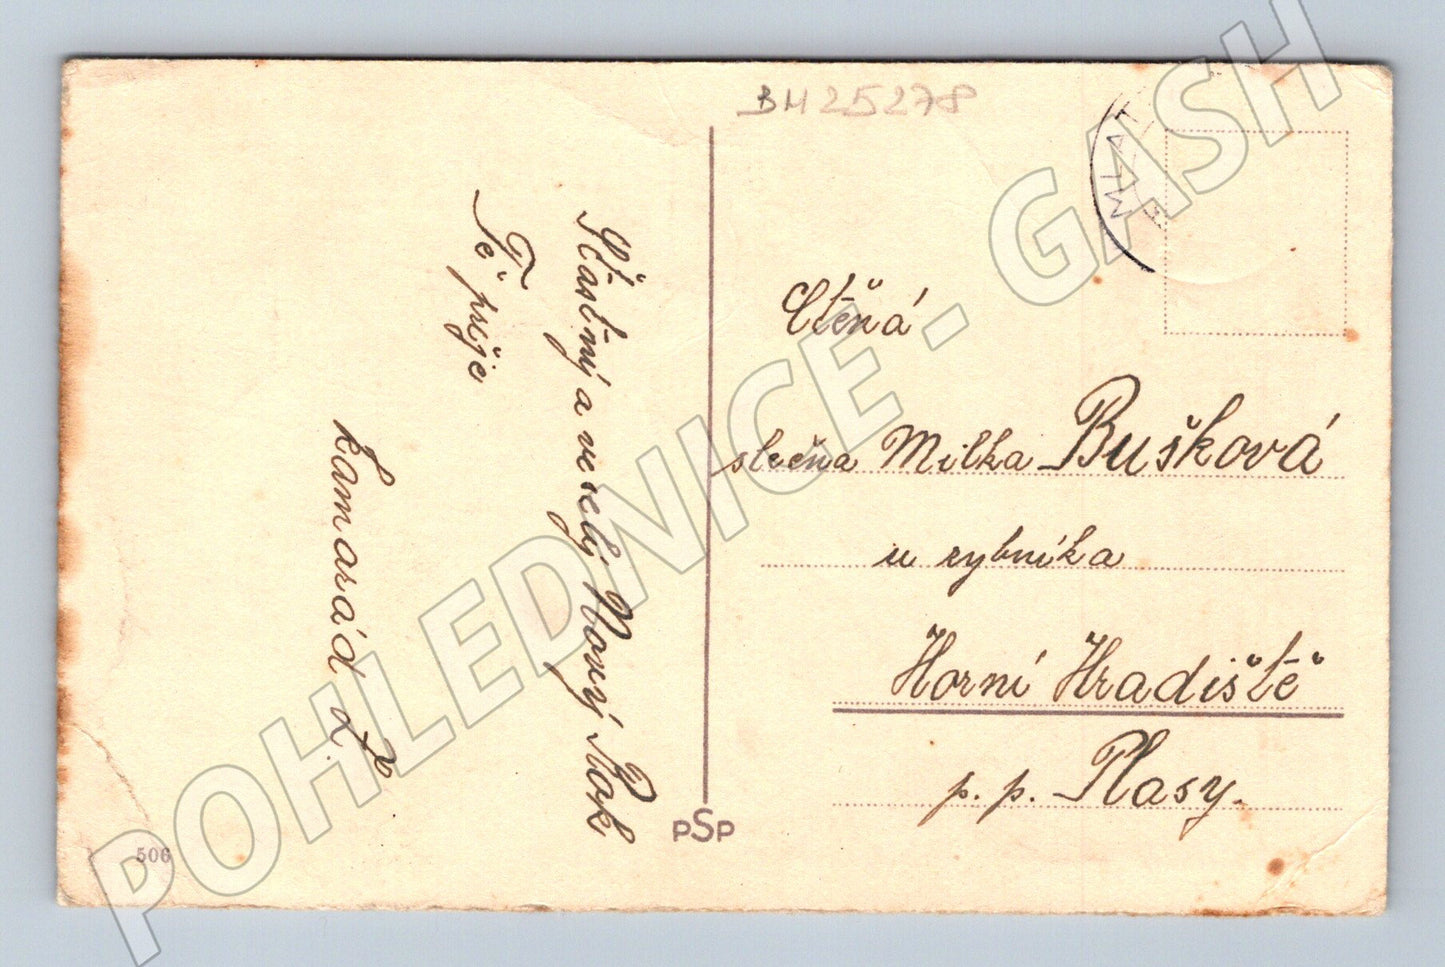 BH25278
Šťastný a veselý Nový Rok
Tě přeje
kamarád
Ctěná
slečna Milka Bušková
u rybníka
Horní Hradiště
p. p. Plasy.
pSp
506
POHLEDNICE - GASH